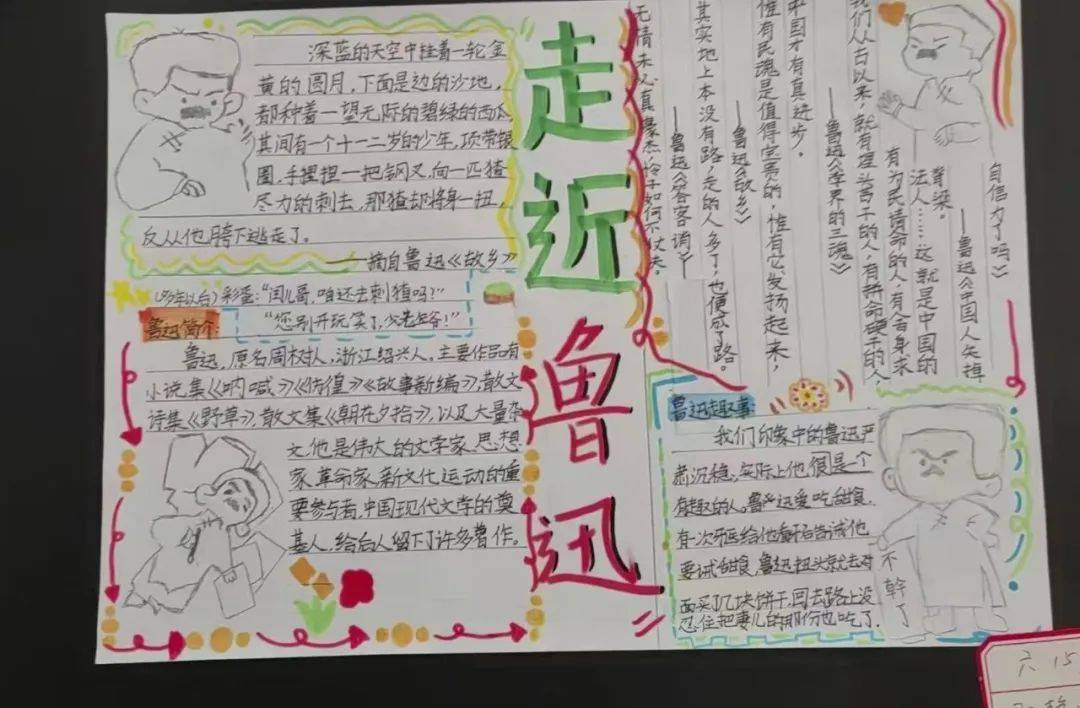 走近
鲁迅
深蓝的天空中挂着一轮金
黄的圆月，下面是边的沙地，
都种着一望无际的碧绿的西瓜
其间有一个十一二岁的少年，项带银
圈，手捏一把钢叉，向一匹猹
尽力的刺去，那猹却将身一扭，
反从他胯下逃走了。
——摘自鲁迅《故乡》
彩蛋：“闰儿哥，咱还去刺猹吗？”
“您别开玩笑了，少老爷！”
鲁迅简介：
鲁迅，原名周树人，浙江绍兴人，主要作品有
小说集《呐喊》《彷徨》《故事新编》，散文
诗集《野草》，散文集《朝花夕拾》，以及大量杂
文，他是伟大的文学家、思想
家、革命家、新文化运动的重
要参与者，中国现代文学的奠
基人，给后人留下了许多著作。
我们从古以来，就有埋头苦干的人，有拼命硬干的人，
有为民请命的人，有舍身求
法人……这就是中国的
脊梁。
——鲁迅《中国人失掉
自信力了吗》
惟有民魂是值得宝贵的，惟有它发扬起来，
中国才有真进步。
——鲁迅《学界的三魂》
其实地上本没有路，走的人多了，也便成了路。
——鲁迅《故乡》
无情未必真豪杰，怜子如何不丈夫。
——鲁迅《答客诮》
鲁迅趣事：
我们印象中的鲁迅严
肃沉稳，实际上他很是一个
有趣的人，鲁迅爱吃甜食，
有一次牙医给他看牙后告诫他
要戒甜食，鲁迅扭头就去对
面买了几块饼干，回去路上没
忍住把妻儿的那份也吃了。
不幹了
六 15